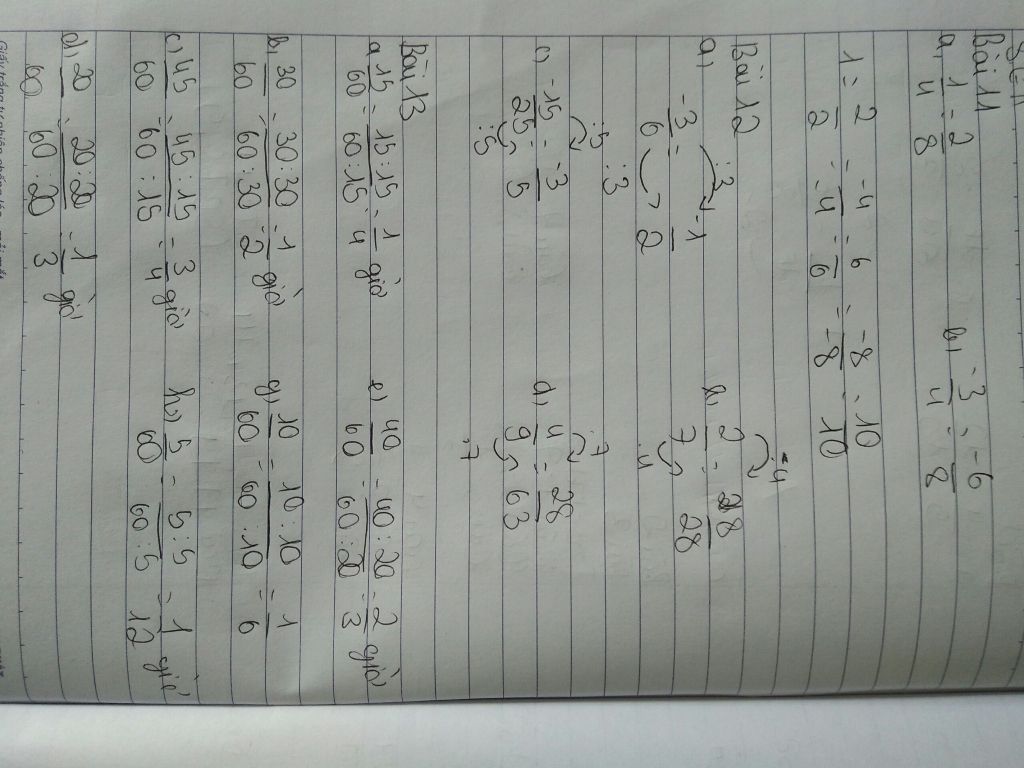 Bài 11
a, 1/4 = 2/8 b, -3/4 = -6/8
1 = 2/2 = -4/-4 = 6/6 = -8/-8 = 10/10
Bài 12
a, -3/6 = -1/2 :3 :3 b, 2/7 = 8/28 .4 .4
c, -15/25 = -3/5 :5 :5 d, 4/9 = 28/63 .7 .7
Bài 13
a, 15/60 = 15:15/60:15 = 1/4 giờ e, 40/60 = 40:20/60:20 = 2/3 giờ
b, 30/60 = 30:30/60:30 = 1/2 giờ g, 10/60 = 10:10/60:10 = 1/6
c, 45/60 = 45:15/60:15 = 3/4 giờ h, 5/60 = 5:5/60:5 = 1/12 giờ
d, 20/60 = 20:20/60:20 = 1/3 giờ